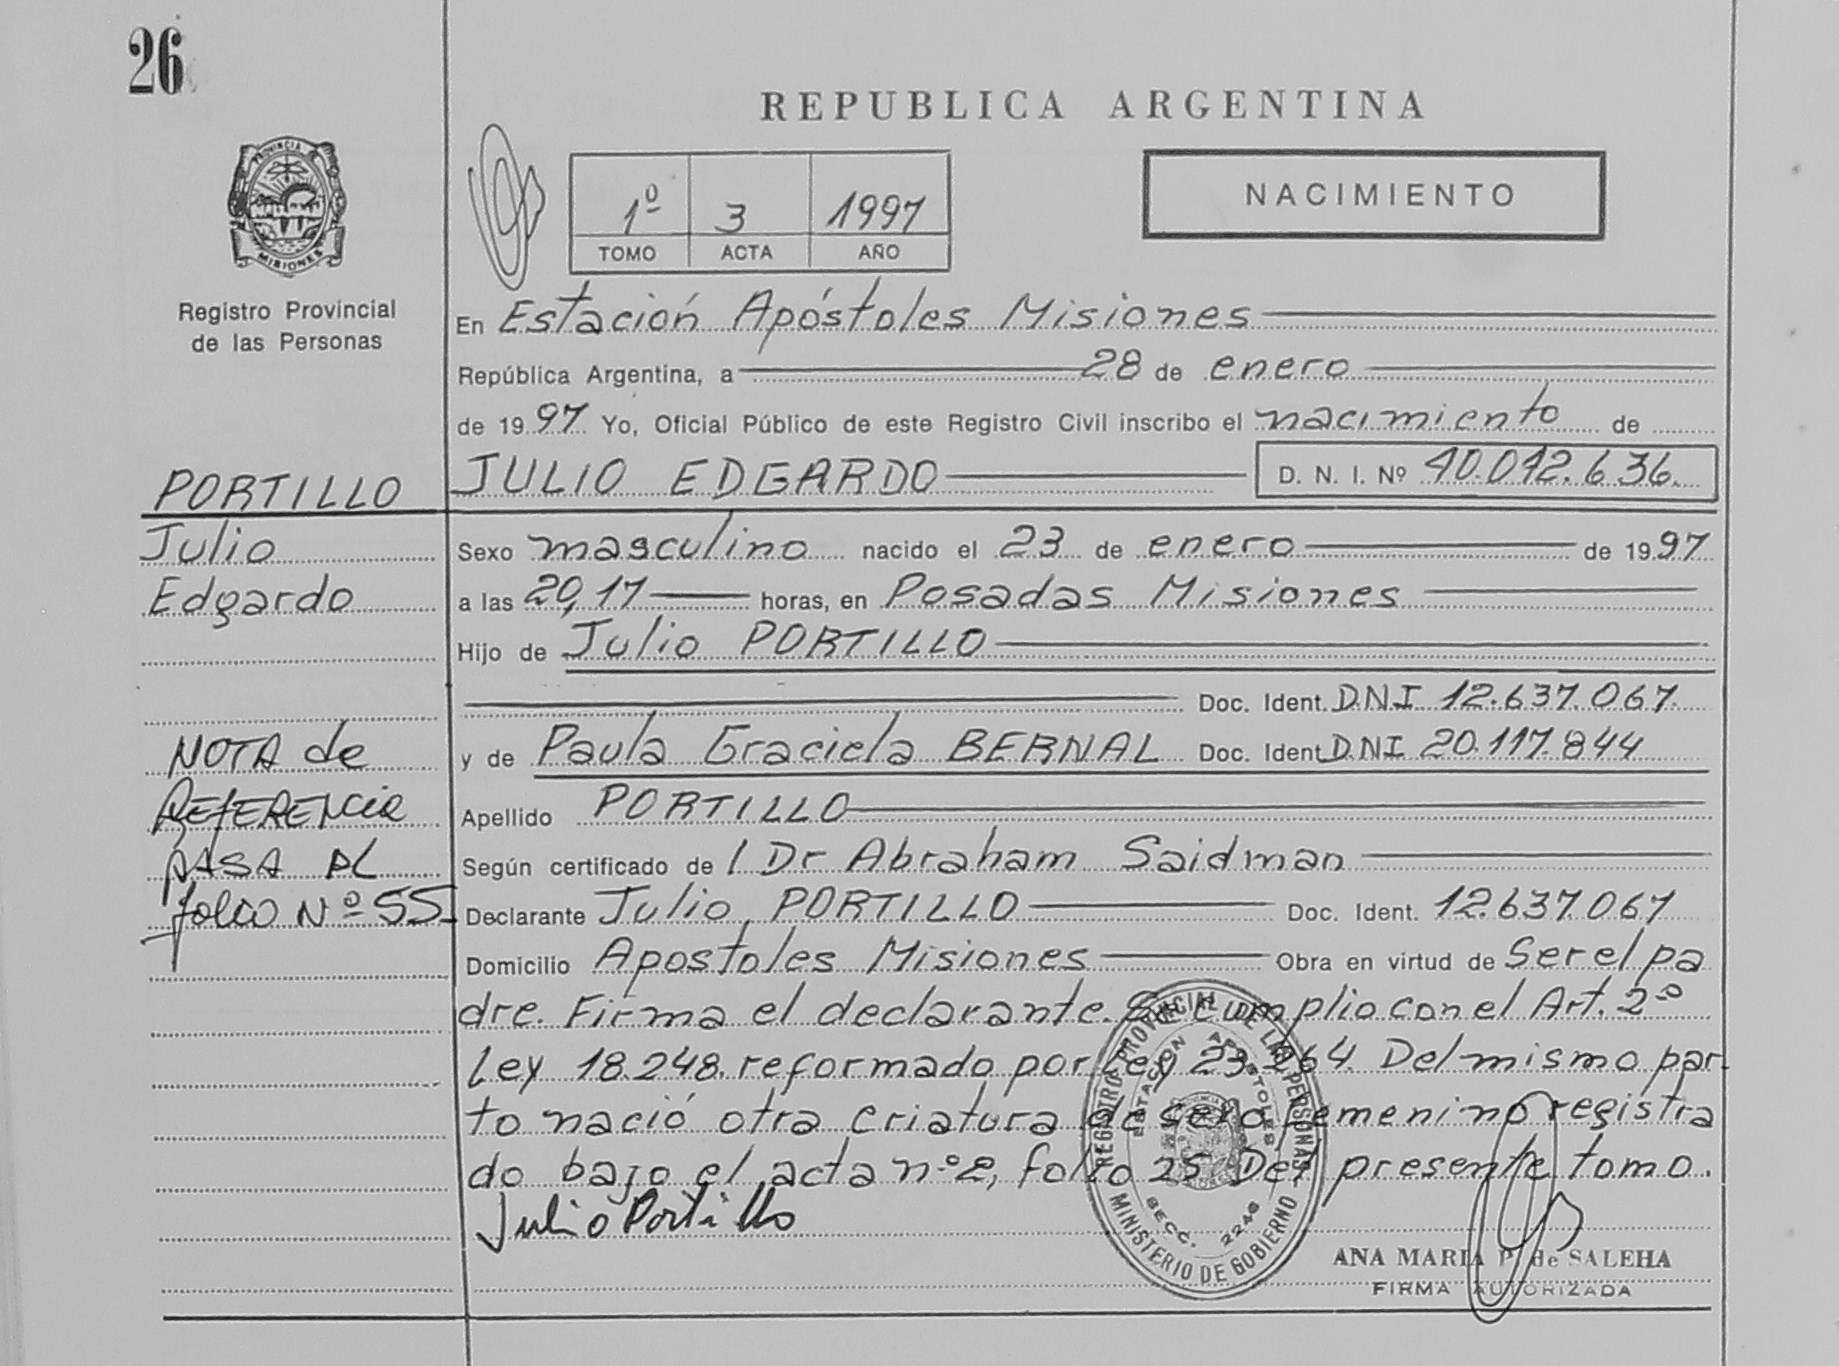 26
REPUBLICA ARGENTINA
PROVINCIA DE MISIONES
1º 3 1997
TOMO ACTA AÑO
NACIMIENTO
Registro Provincial
de las Personas
En Estación Apóstoles Misiones
República Argentina, a 28 de enero
de 1997 Yo, Oficial Público de este Registro Civil inscribo el nacimiento de
PORTILLO JULIO EDGARDO D. N. I. Nº 40.012.636.
Julio Sexo masculino nacido el 23 de enero de 1997
Edgardo a las 20,17 horas, en Posadas Misiones
Hijo de Julio PORTILLO
Doc. Ident. DNI 12.637.067.
NOTA de y de Paula Graciela BERNAL Doc. Ident. DNI 20.117.844
REFERENCIA Apellido PORTILLO
PASA AL Según certificado de l Dr Abraham Saidman
folio Nº 55 Declarante Julio PORTILLO Doc. Ident. 12.637.067
Domicilio Apostoles Misiones Obra en virtud de Ser el pa
dre. Firma el declarante. Se cumplio con el Art. 2º
Ley 18.248. reformado por Ley 23.264. Del mismo par-
to nació otra criatura de sexo femenino registra
do bajo el acta nº 2, folio 25 Del presente tomo.
Julio Portillo
REGISTRO PROVINCIAL DE LAS PERSONAS
ESTACION APOSTOLES
SECC. 2246
MINISTERIO DE GOBIERNO
ANA MARIA P. de SALEHA
FIRMA AUTORIZADA